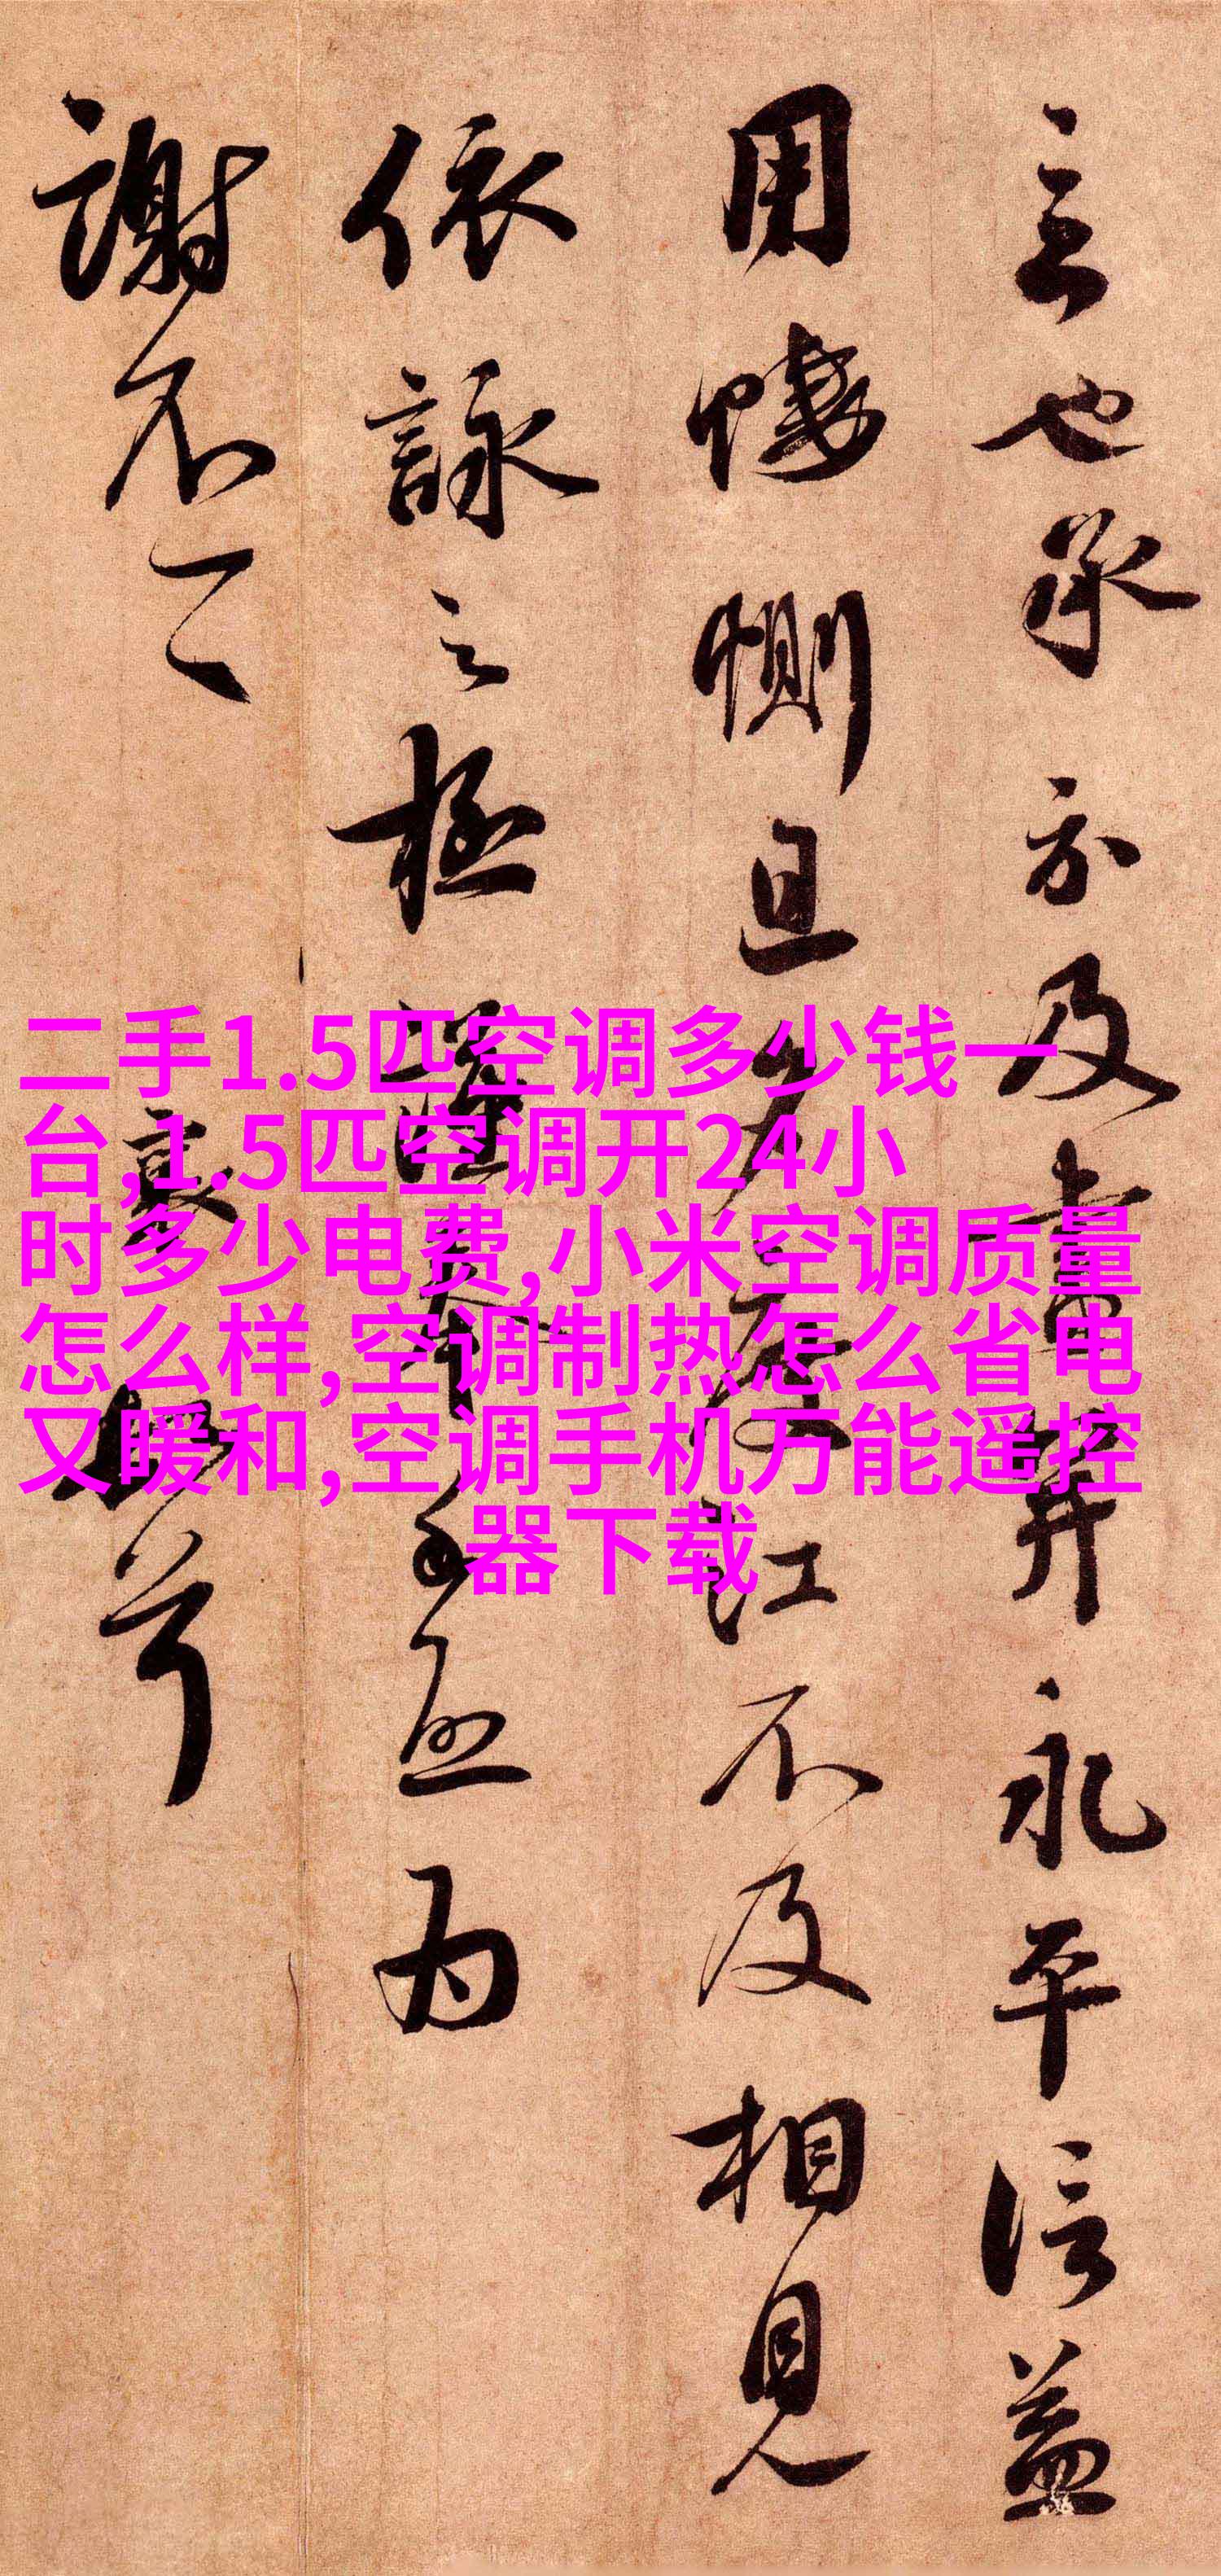 言也承示及書并永平信益
用悽惻旦夕度江不及相見
依詠之極謹奉手啓为
謝不一一 襄頓首
二手1.5匹空调多少钱一
台,1.5匹空调开24小
时多少电费,小米空调质量
怎么样,空调制热怎么省电
又暖和,空调手机万能遥控
器下载